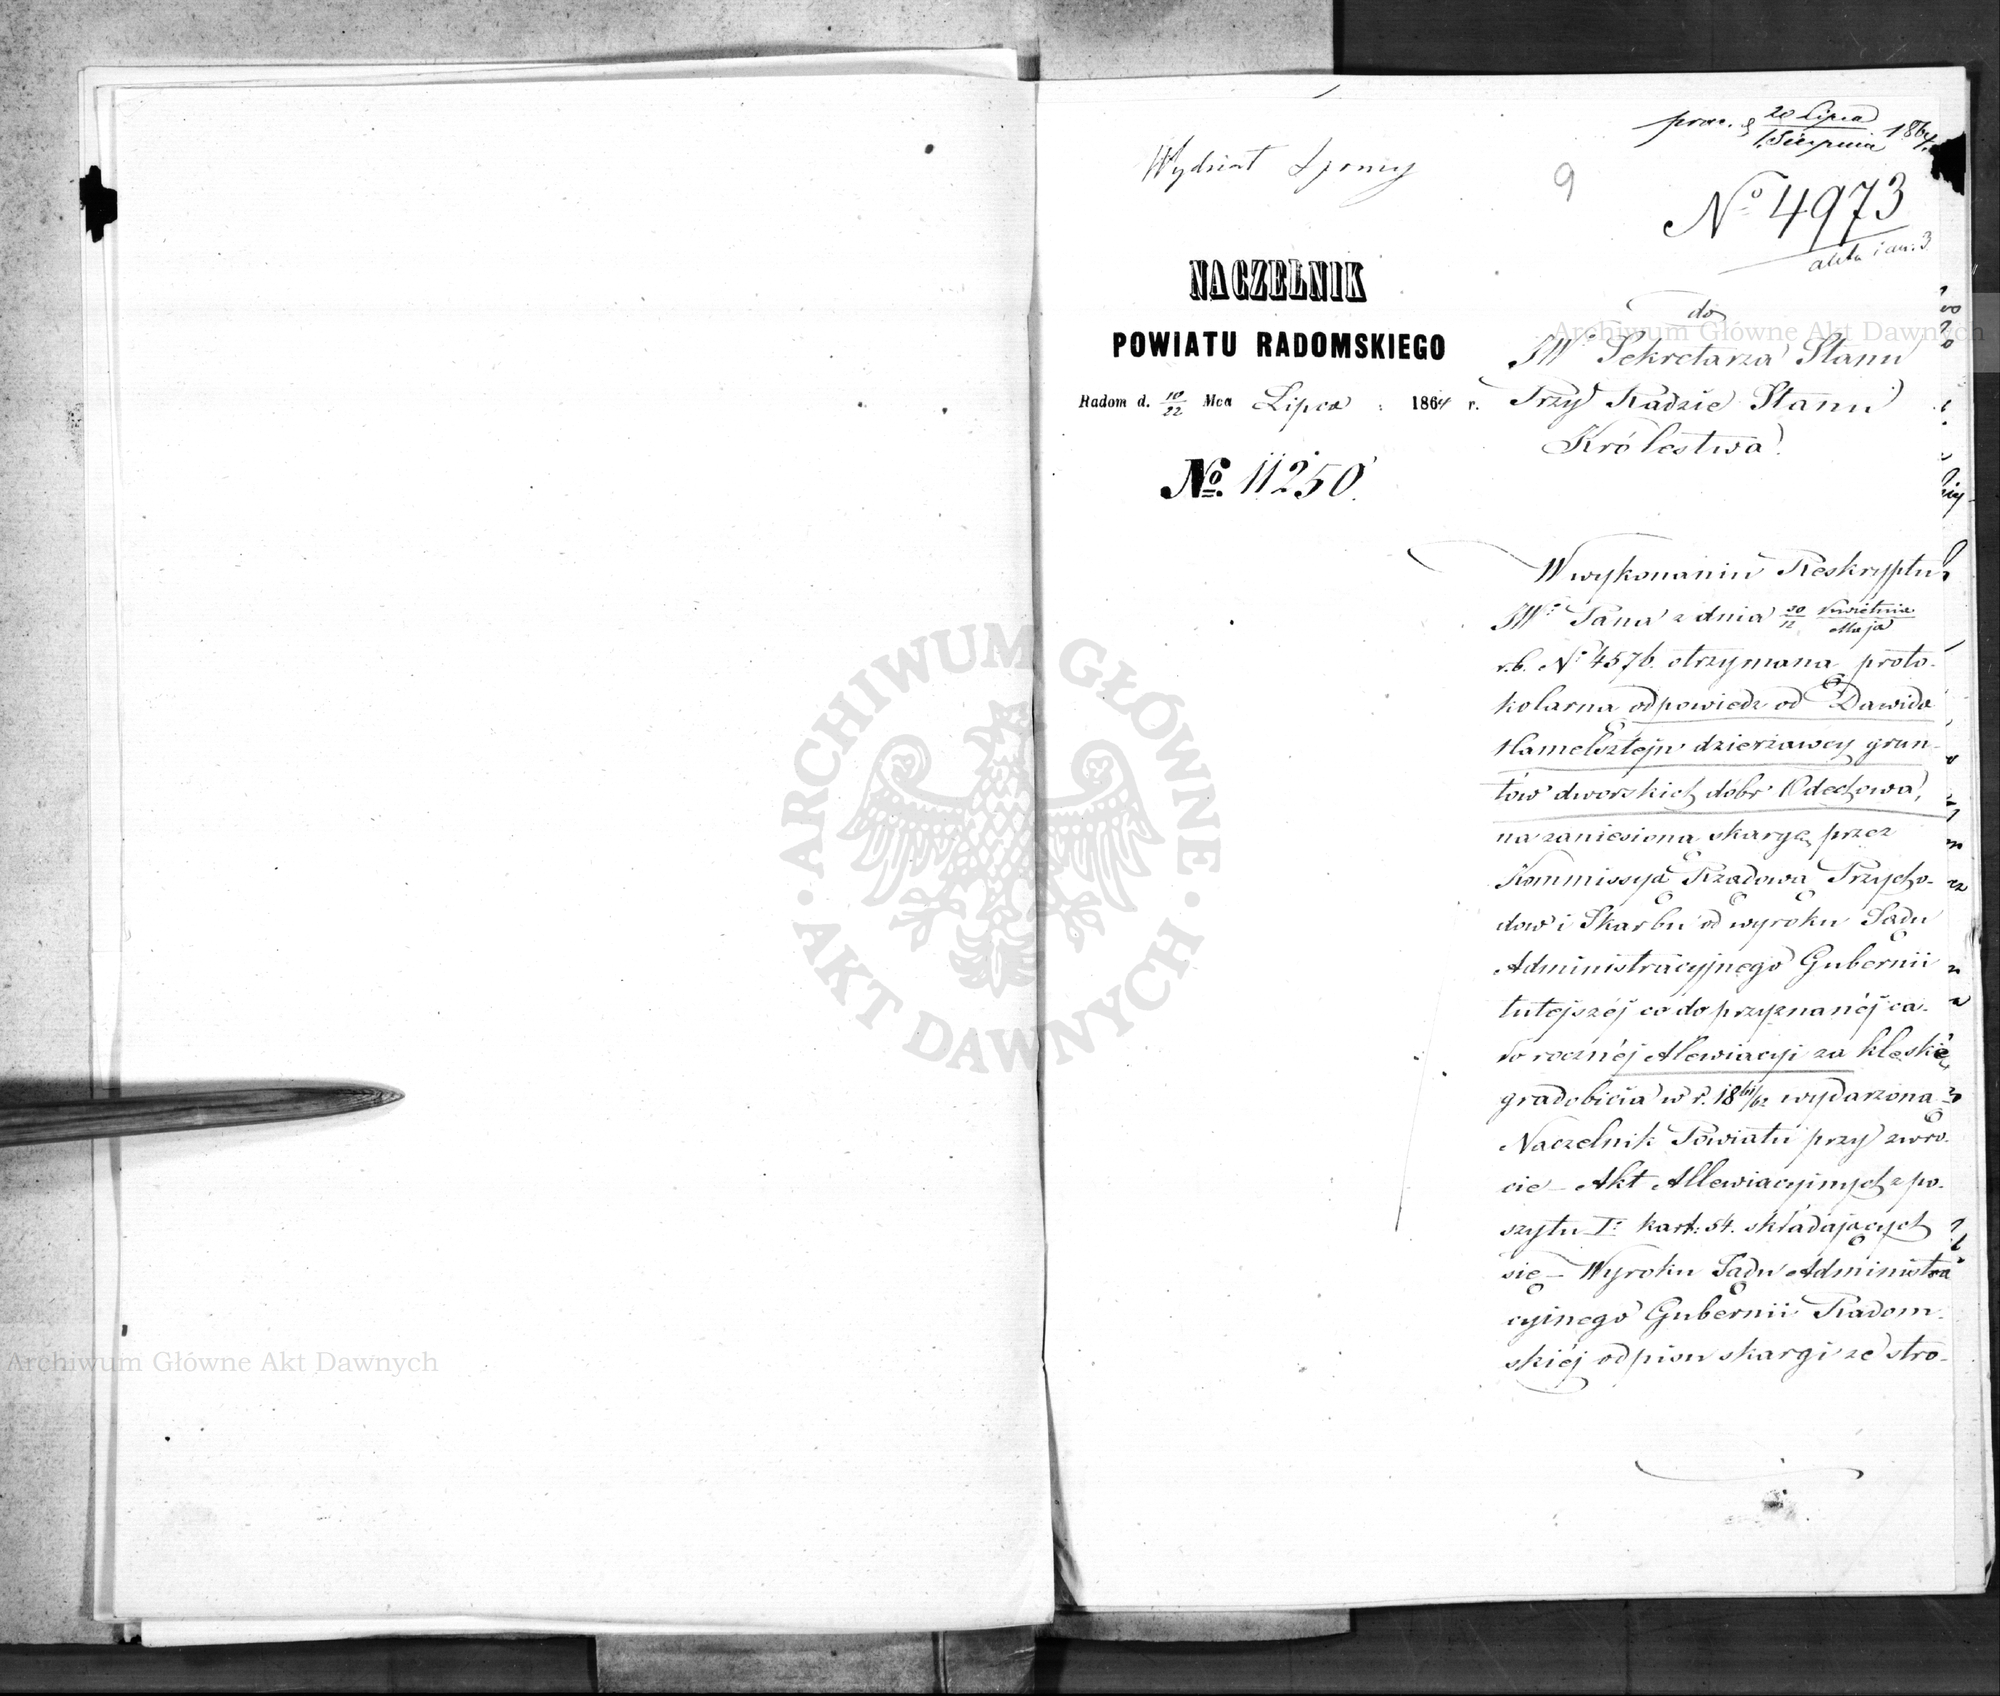 prez. d 20 Lipca
1 Sierpnia 1864 r.
Wydział Sporny
9
No 4973
akta i an: 3
NACZELNIK
POWIATU RADOMSKIEGO
Radom d. 10/22 Mca Lipca 1864 r.
No. 11250.
do
JWo Sekretarza Stanu
Przy Radzie Stanu
Królestwa.
W wykonaniu Reskryptu
JWo Pana z dnia 30/12 Kwietnia/Maja
r.b. No 4576. otrzymaną proto-
kolarną odpowiedź od Dawida
Hamelsztejn dzierżawcy grun-
tów dworskich dóbr Odechowa,
na zaniesioną skargę przez
Kommissyą Rządową Przycho-
dow i Skarbu od wyroku Sądu
Administracyjnego Gubernii
tutejszéj co do przyznanéj ca-
ło rocznéj Alewiacyi za klęskę
gradobicia w r. 1861/62 wydarzoną
Naczelnik Powiatu przy zwro-
cie – Akt Allewiacyinych z po-
szytu I: kart: 54. składających
się – Wyroku Sądu Administra
cyinego Gubernii Radom-
skiéj odpisu skargi ze stro-
Archiwum Główne Akt Dawnych
ARCHIWUM GŁÓWNE AKT DAWNYCH
Archiwum Główne Akt Dawnych